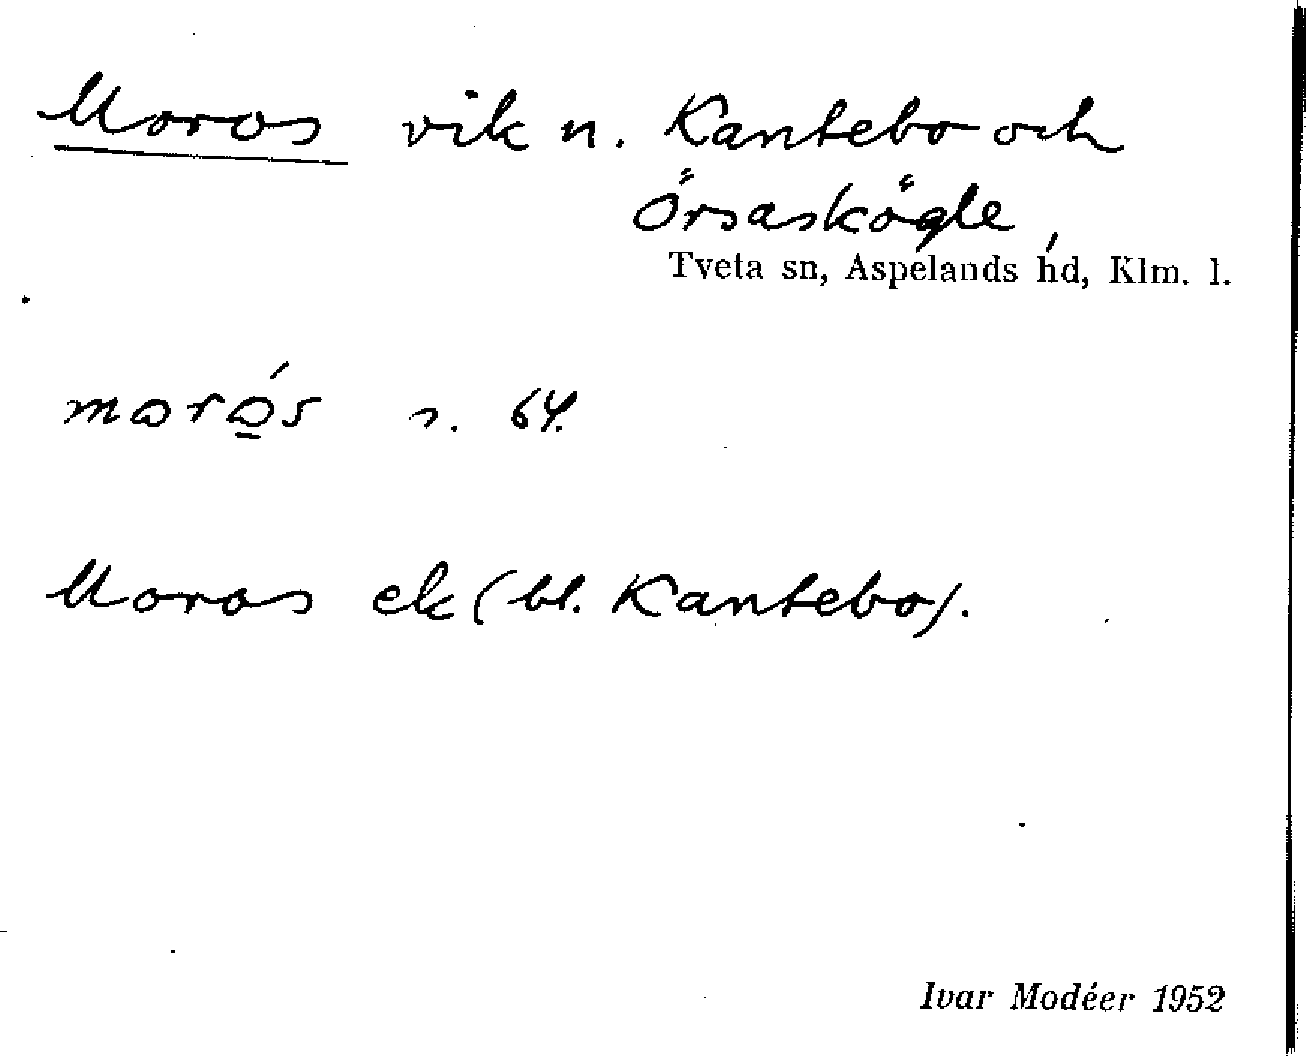 Moros vik n. Kantebo och
Örsaskögle,
Tveta sn, Aspelands hd, Klm. l.
s. 64.
Moros ek (bl. Kantebo).
Ivar Modéer 1952